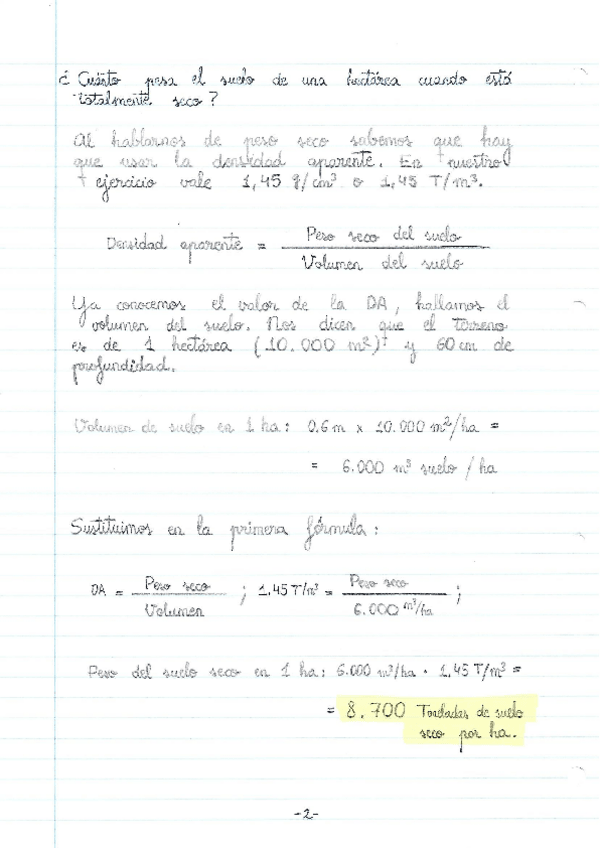 ¿ Cuánto pesa el suelo de una hectárea cuando está
totalmente seco ?
Al hablarnos de peso seco sabemos que hay
que usar la densidad aparente. En nuestro
ejercicio vale 1,45 g/cm³ o 1,45 T/m³.
Densidad aparente = Peso seco del suelo
Volumen del suelo
Ya conocemos el valor de la DA, hallamos el
volumen del suelo. Nos dicen que el terreno
es de 1 hectárea (10.000 m²) y 60 cm de
profundidad.
Volumen de suelo en 1 ha: 0.6 m x 10.000 m²/ha =
= 6.000 m³ suelo / ha
Sustituimos en la primera fórmula :
DA = Peso seco ; 1.45 T/m³ = Peso seco ;
Volumen 6.000 m³/ha
Peso del suelo seco en 1 ha: 6.000 m³/ha · 1.45 T/m³ =
= 8.700 Toneladas de suelo
seco por ha.
-2-